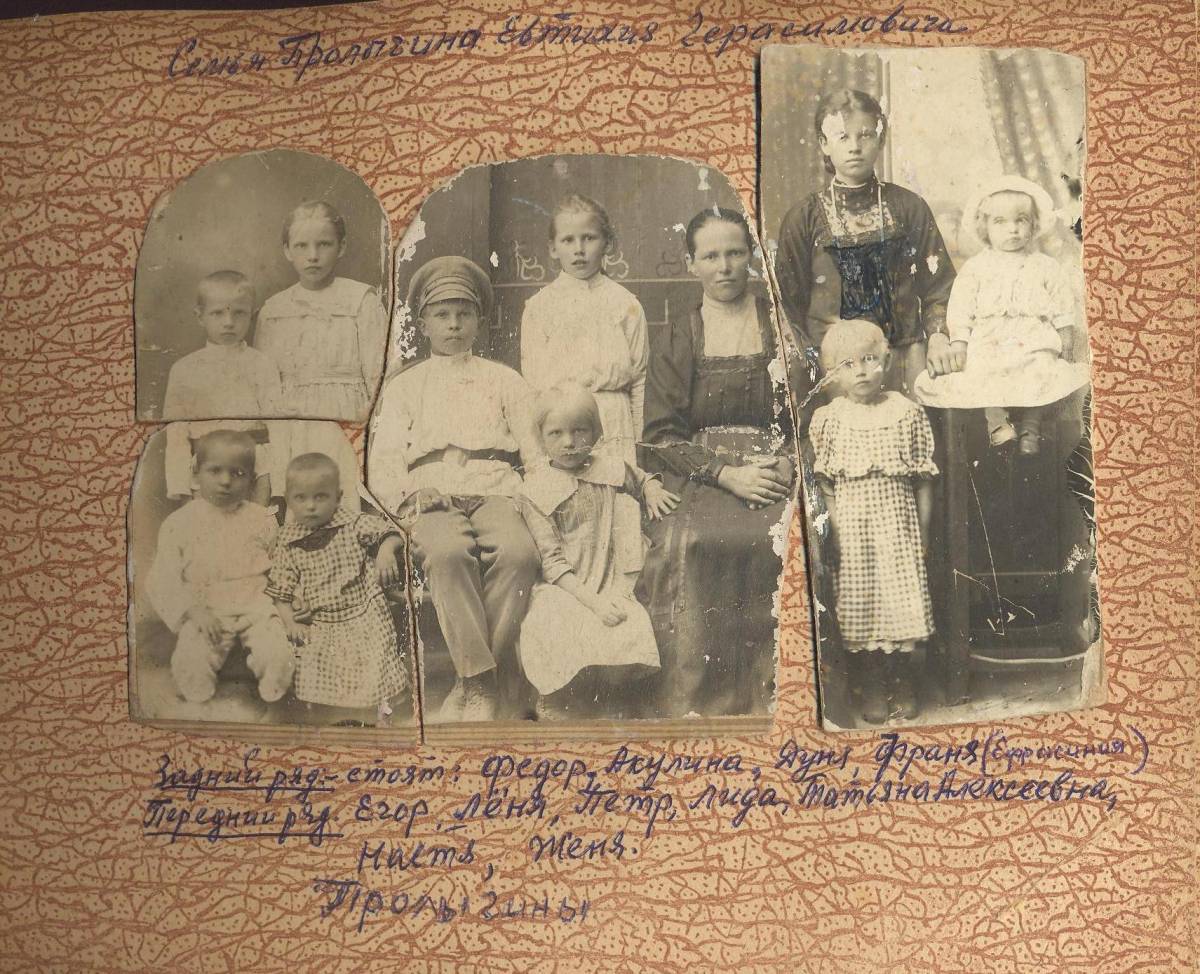 Семья Пролыгина Евтихия Герасимовича
Задний ряд - стоят: Федор, Акулина, Дуня, Франя (Ефросиния)
Передний ряд. Егор, Лёня, Петр, Лида, Татьяна Алексеевна,
Настя, Женя.
Пролыгины